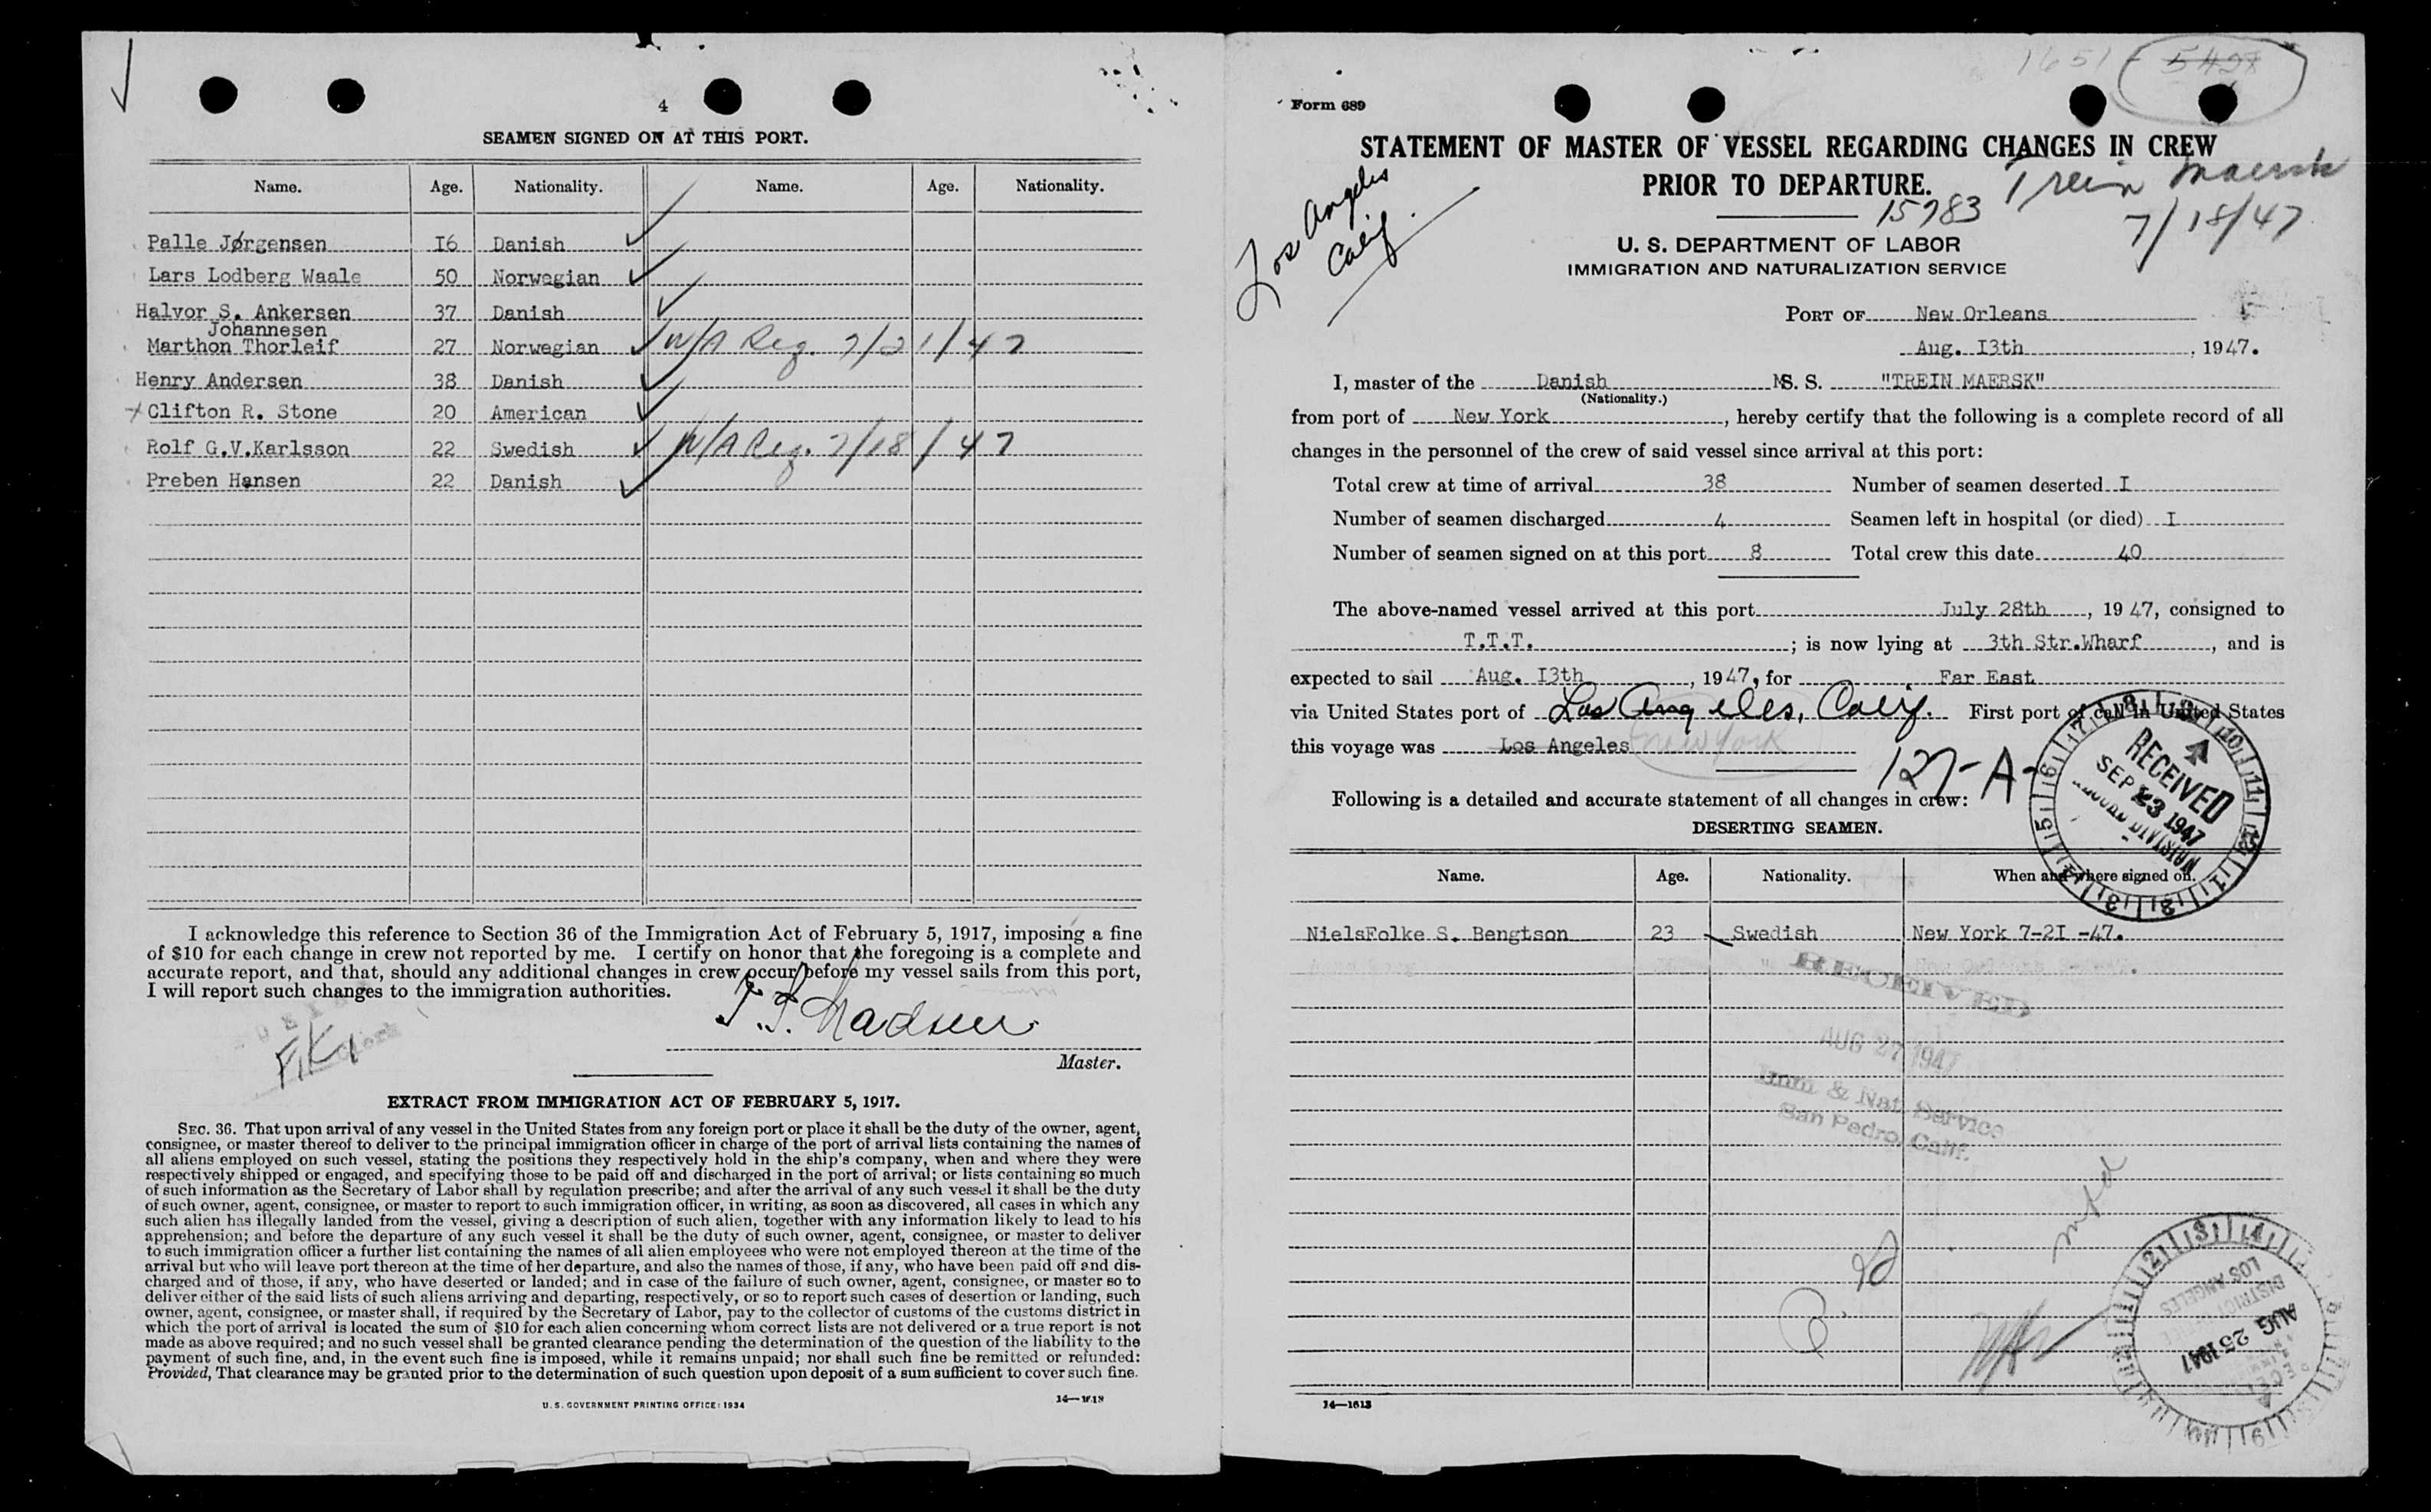 4
SEAMEN SIGNED ON AT THIS PORT.
Name. Age. Nationality. Name. Age. Nationality.
Palle Jørgensen I6 Danish
Lars Lodberg Waale 50 Norwegian
Halvor S. Ankersen 37 Danish
Johannesen
Marthon Thorleif 27 Norwegian W/A Reg. 7/21/47
Henry Andersen 38 Danish
Clifton R. Stone 20 American
Rolf G.V.Karlsson 22 Swedish W/A Reg. 7/18/47
Preben Hansen 22 Danish
I acknowledge this reference to Section 36 of the Immigration Act of February 5, 1917, imposing a fine
of $10 for each change in crew not reported by me. I certify on honor that the foregoing is a complete and
accurate report, and that, should any additional changes in crew occur before my vessel sails from this port,
I will report such changes to the immigration authorities.
Madsen
F.K.
Master.
EXTRACT FROM IMMIGRATION ACT OF FEBRUARY 5, 1917.
SEC. 36. That upon arrival of any vessel in the United States from any foreign port or place it shall be the duty of the owner, agent,
consignee, or master thereof to deliver to the principal immigration officer in charge of the port of arrival lists containing the names of
all aliens employed on such vessel, stating the positions they respectively hold in the ship's company, when and where they were
respectively shipped or engaged, and specifying those to be paid off and discharged in the port of arrival; or lists containing so much
of such information as the Secretary of Labor shall by regulation prescribe; and after the arrival of any such vessel it shall be the duty
of such owner, agent, consignee, or master to report to such immigration officer, in writing, as soon as discovered, all cases in which any
such alien has illegally landed from the vessel, giving a description of such alien, together with any information likely to lead to his
apprehension; and before the departure of any such vessel it shall be the duty of such owner, agent, consignee, or master to deliver
to such immigration officer a further list containing the names of all alien employees who were not employed thereon at the time of the
arrival but who will leave port thereon at the time of her departure, and also the names of those, if any, who have been paid off and dis-
charged and of those, if any, who have deserted or landed; and in case of the failure of such owner, agent, consignee, or master so to
deliver either of the said lists of such aliens arriving and departing, respectively, or so to report such cases of desertion or landing, such
owner, agent, consignee, or master shall, if required by the Secretary of Labor, pay to the collector of customs of the customs district in
which the port of arrival is located the sum of $10 for each alien concerning whom correct lists are not delivered or a true report is not
made as above required; and no such vessel shall be granted clearance pending the determination of the question of the liability to the
payment of such fine, and, in the event such fine is imposed, while it remains unpaid; nor shall such fine be remitted or refunded:
Provided, That clearance may be granted prior to the determination of such question upon deposit of a sum sufficient to cover such fine.
U. S. GOVERNMENT PRINTING OFFICE: 1934
1651
Form 689
STATEMENT OF MASTER OF VESSEL REGARDING CHANGES IN CREW
PRIOR TO DEPARTURE.
Trein Maersk
15783
7/18/47
Los Angeles
Calif.
U. S. DEPARTMENT OF LABOR
IMMIGRATION AND NATURALIZATION SERVICE
PORT OF New Orleans
Aug. I3th, 1947.
I, master of the Danish MS. S. "TREIN MAERSK"
(Nationality.)
from port of New York, hereby certify that the following is a complete record of all
changes in the personnel of the crew of said vessel since arrival at this port:
Total crew at time of arrival 38 Number of seamen deserted I
Number of seamen discharged 4 Seamen left in hospital (or died) I
Number of seamen signed on at this port 8 Total crew this date 40
The above-named vessel arrived at this port July 28th, 1947, consigned to
T.T.T.; is now lying at 3th Str.Wharf, and is
expected to sail Aug. I3th, 1947, for Far East
via United States port of Los Angeles, Calif. First port of call in United States
this voyage was Los Angeles New York
127-A-
Following is a detailed and accurate statement of all changes in crew:
RECEIVED
SEP 23 1947
RECORD DIVISION
DESERTING SEAMEN.
Name. Age. Nationality. When and where signed on.
NielsFolke S. Bengtson 23 Swedish New York 7-2I -47.
RECEIVED
AUG 27 1947
Imm & Nat Service
San Pedro, Calif.
LOS ANGELES
DISTRICT
AUG 25 1947
14—1613